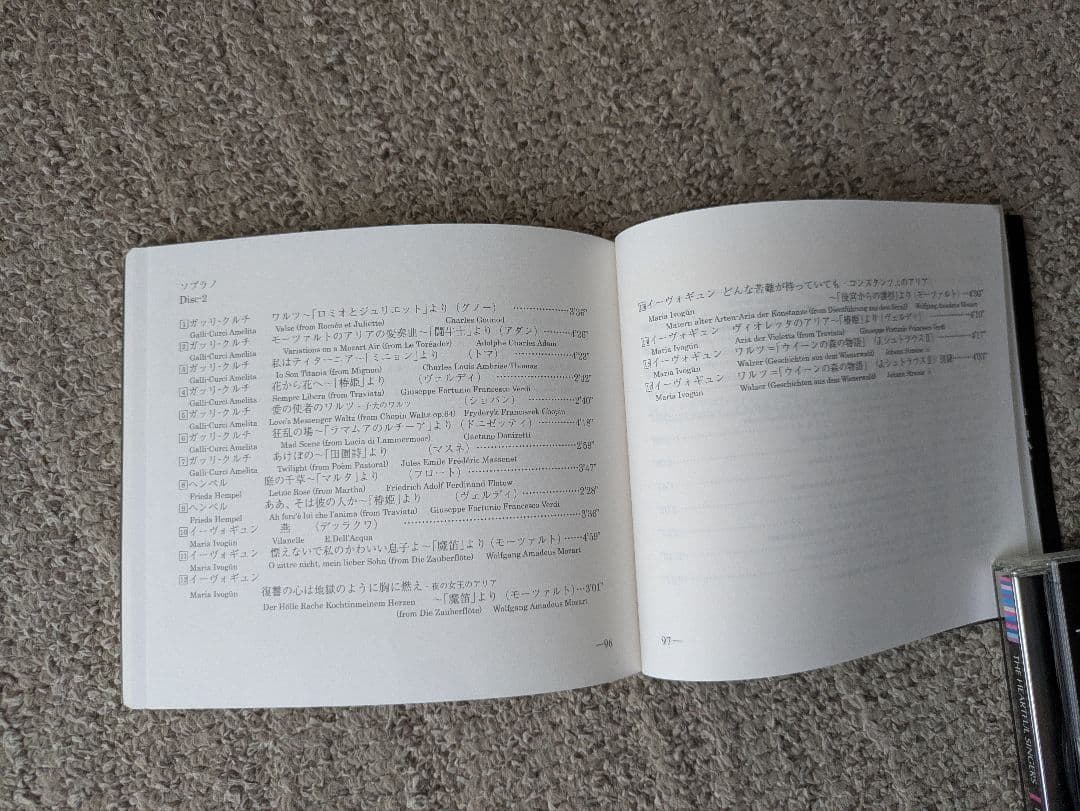 ソプラノ
Disc-2
1 ガッリ・クルチ ワルツ~「ロミオとジュリエット」より (グノー) ……………3'36"
Galli-Curci Amelita Valse (from Roméo et Juliette) Charles Gounod
2 ガッリ・クルチ モーツァルトのアリアの変奏曲~「闘士」より (アダン) ………4'26"
Galli-Curci Amelita Variations on a Mozart Air (from Le Toréador) Adolphe Charles Adam
ガッリ・クルチ 私はティタニア~「ミニョン」より (トマ) ………………4'23"
Galli-Curci Amelita Io Son Titania (from Mignon) Charles Louis Ambroise Thomas
4 ガッリ・クルチ 花から花へ~「椿姫」より (ヴェルディ) ………………2'12"
Galli-Curci Amelita Sempre Libera (from Traviata) Giuseppe Fortunio Francesco Verdi
5 ガッリ・クルチ 愛の使者のワルツ - 子犬のワルツ (ショパン) ………………2'40"
Galli-Curci Amelita Love's Messenger Waltz (from Chopin Waltz op.64) Fryderyk Franciszek Chopin
6 ガッリ・クルチ 狂乱の場~「ラマムアのルチーア」より (ドニゼッティ) …………
Galli-Curci Amelita Mad Scene (from Lucia di Lammermoor) Gaetano Donizetti
7 ガッリ・クルチ あけぼの~「田園詩」より (マスネ) ………………2'59"
Galli-Curci Amelita Twilight (from Poèm Pastoral) Jules Emile Frédéric Massenet
8 ヘンペル 庭の千草~「マルタ」より (フロート) ………………3'47"
Frieda Hempel Letzte Rose (from Martha) Friedrich Adolf Ferdinand Flotow
9 ヘンペル ああ、そは彼の人か~「椿姫」より (ヴェルディ) ………………2'28"
Frieda Hempel Ah fors'è lui che l'anima (from Traviata) Giuseppe Fortunio Francesco Verdi
10 イーヴォギュン 燕 (デッラクワ) ………………3'36"
Maria Ivogün Vilanelle E.Dell'Acqua
11 イーヴォギュン 怯えないで私のかわいい息子よ~「魔笛」より (モーツァルト) ……4'59"
Maria Ivogün O zittre nicht, mein lieber Sohn (from Die Zauberflöte) Wolfgang Amadeus Mozart
12 イーヴォギュン
Maria Ivogün 復讐の心は地獄のように胸に燃え - 夜の女王のアリア
~「魔笛」より (モーツァルト) …3'01"
Der Hölle Rache Kochtinmeinem Herzen
(from Die Zauberflöte) Wolfgang Amadeus Mozart
—96
13 イーヴォギュン どんな苦難が待っていても - コンスタンツェのアリア
~「後宮からの誘拐」より (モーツァルト) …4'30"
Maria Ivogün Matern aller Arten-Aria der Konstanze (from Dieentführung aus dem Serail) Wolfgang Amadeus Mozart
14 イーヴォギュン ヴィオレッタのアリア~「椿姫」より (ヴェルディ)
Maria Ivogün Aria der Violetta (from Traviata) Giuseppe Fortunio Francesco Verdi
15 イーヴォギュン ワルツ=「ウイーンの森の物語」 (J.シュトラウスⅡ) …4'17"
Maria Ivogün Walzer (Geschichten aus dem Wienerwald) Johann Strauss Ⅱ
16 イーヴォギュン ワルツ=「ウイーンの森の物語」 (J.シュトラウスⅡ) 別録
Maria Ivogün Walzer (Geschichten aus dem Wienerwald) Johann Strauss Ⅱ
97—
THE HEARTFUL SINGERS